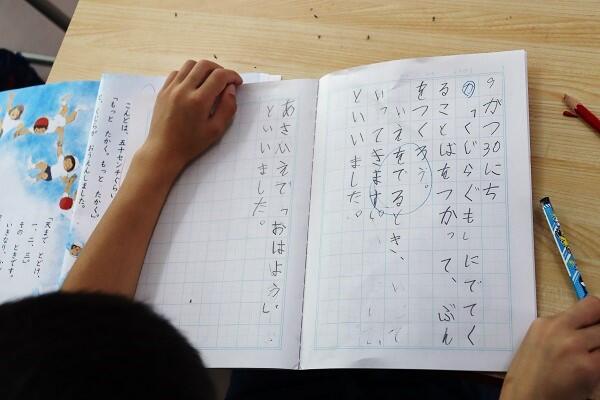 9がつ30にち
か「くじらぐも」にでてく
ることばをつかって、ぶん
をつくろう。
いえをでるとき、
いってきます。
といいました。
あさいえで「おはよう」
といいました。
こんどは、五十センチぐらい
「もっと たかく。もっと たかく。」
おうえんしました。
「天まで とどけ、
一、二、三。」
その ときです。
いきなり、